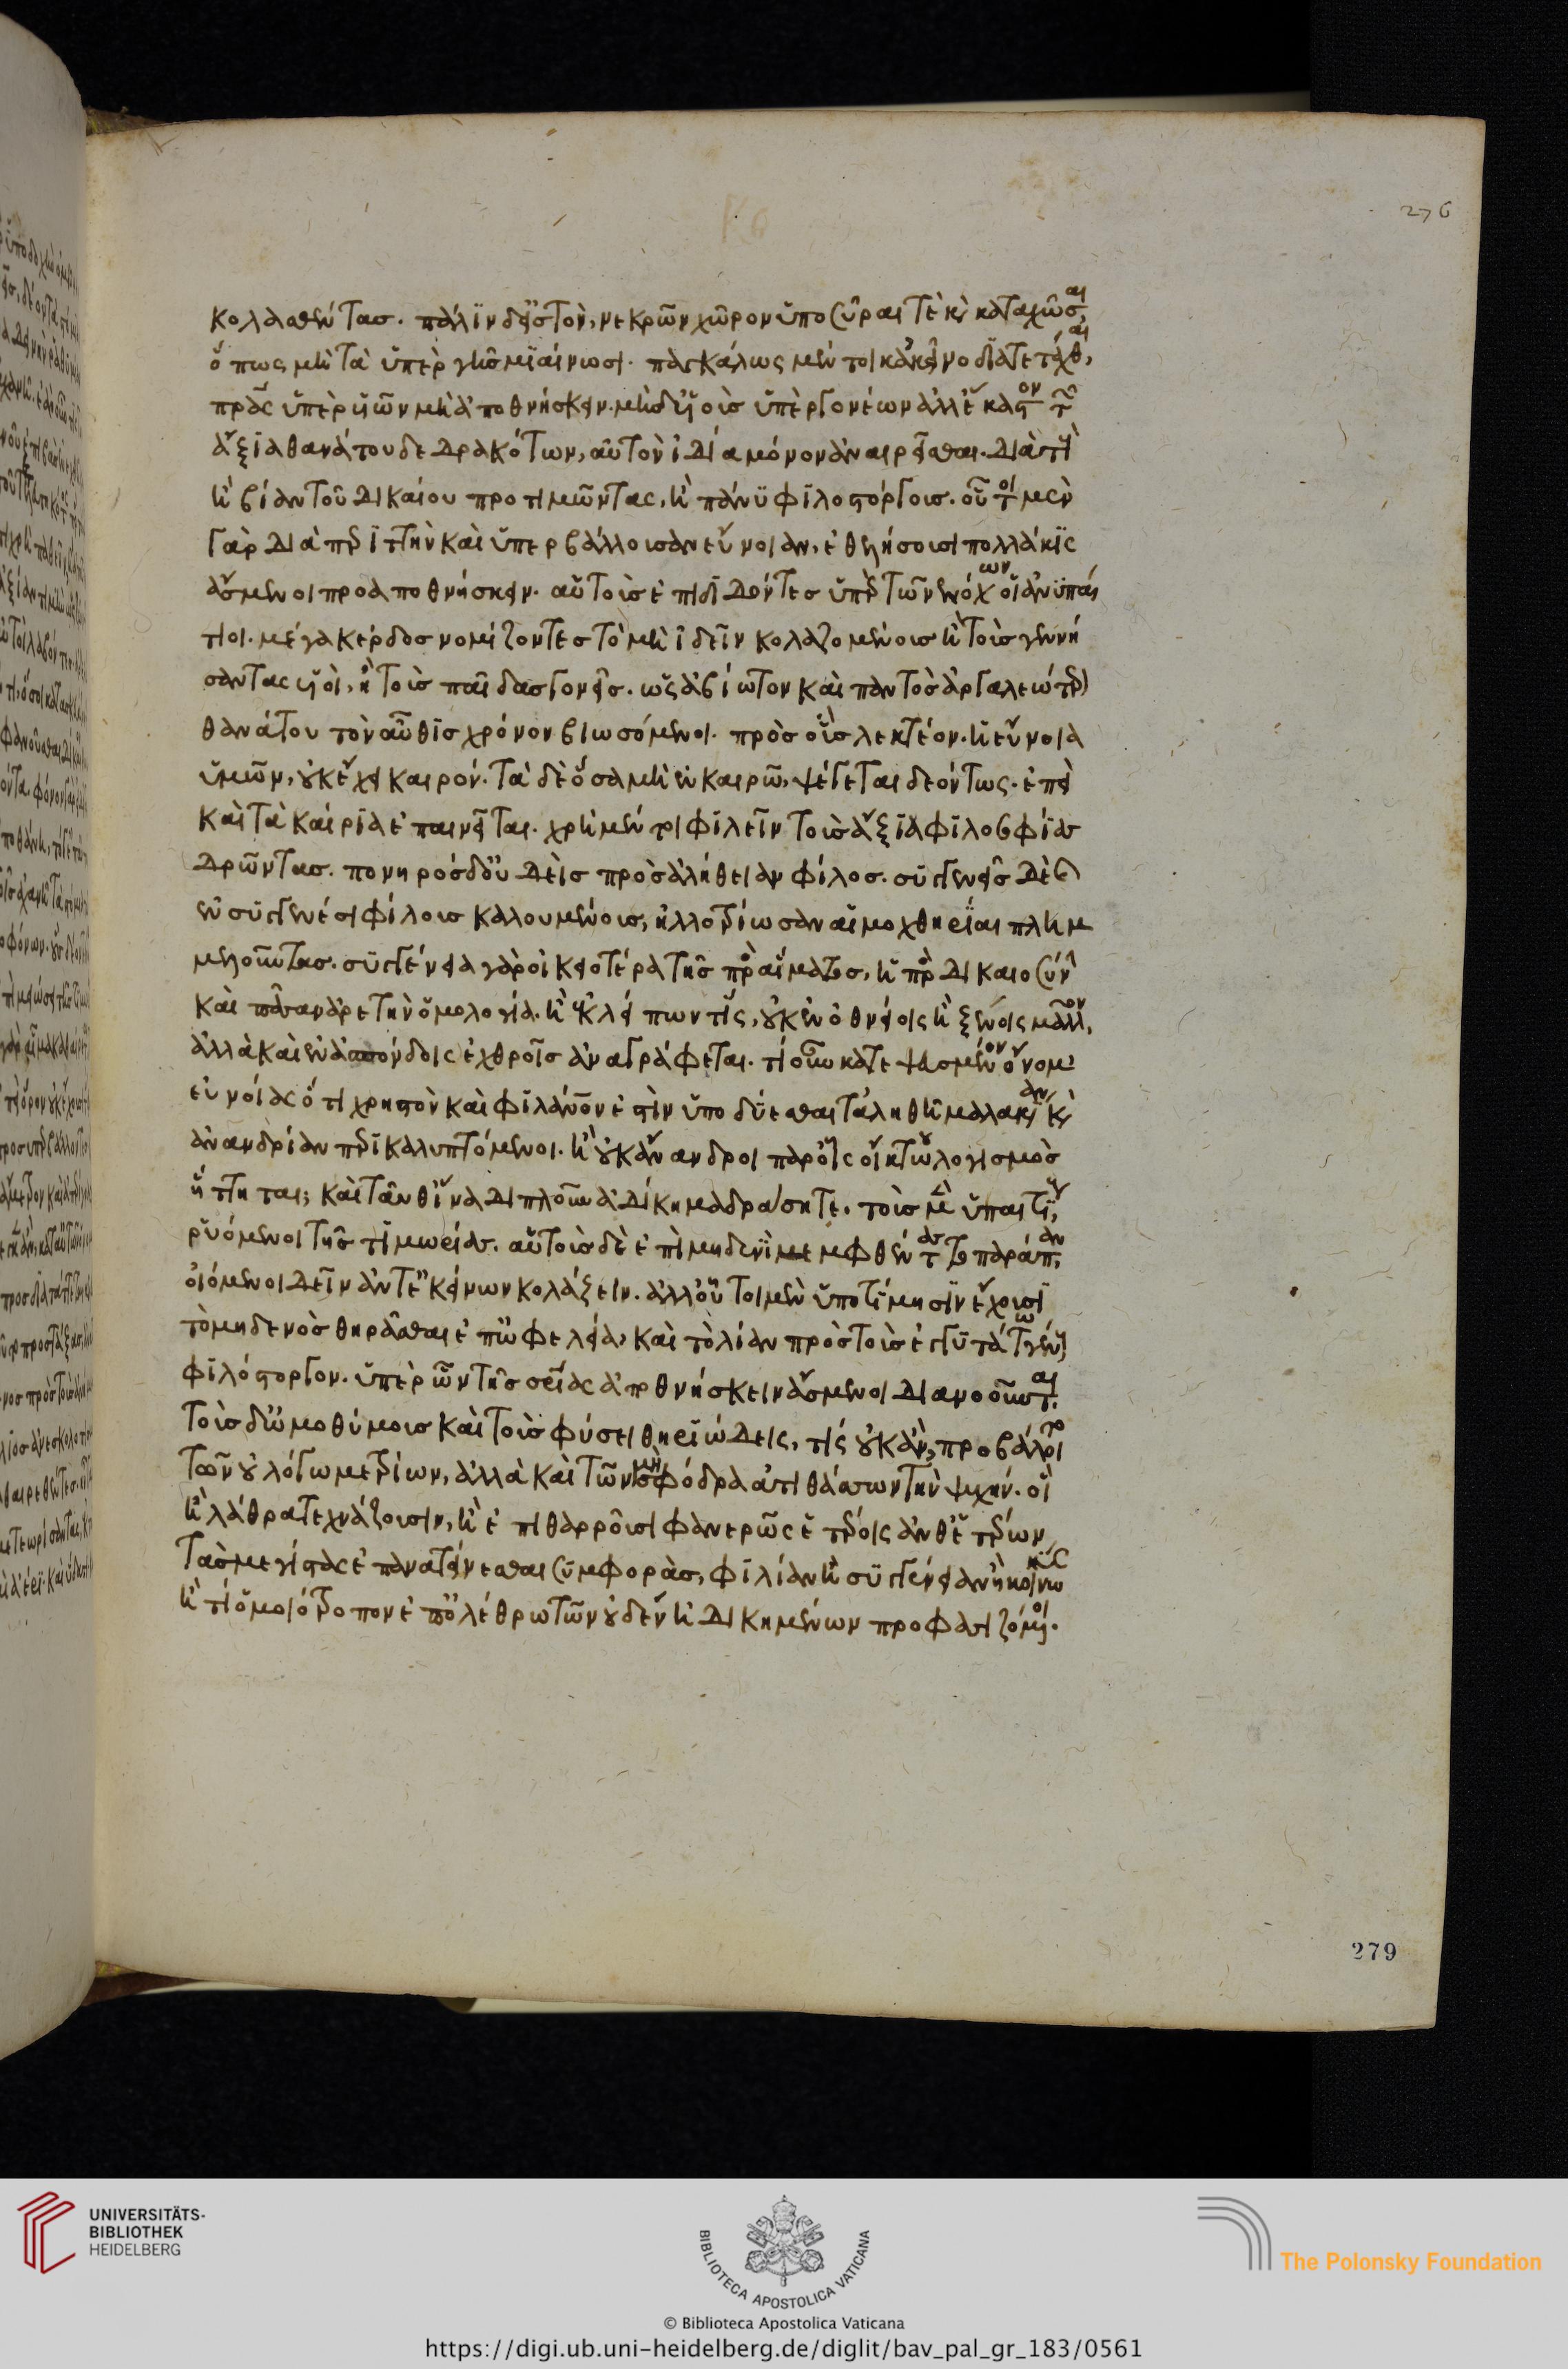 κολασθέντας. πάλιν δ' εἰς τὸν νεκρῶν χῶρον ὑποσῦραι τὲ κὶ καταχῶσαι,
ὅπως μὴ τὰ ὑπὲρ γῆς μιαίνωσι. παγκάλως μέν τοι κἀκεῖνο διατετάχθαι,
πρας ὑπὲρ υἱῶν μὴ ἀποθνήσκειν. μὴ δ' υἱοὺς ὑπὲρ γονέων ἀλλ' ἕκαστον τῶν
ἄξια θανάτου δεδρακότων, αὐτὸν ἰδία μόνον ἀναιρεῖσθαι. διὰ τοὺς
ἢ βίαν τοῦ δικαίου προτιμῶντας, ἢ πάνυ φιλοστόργους. οὗτοι μὲν
γὰρ διὰ περιττὴν καὶ ὑπερβάλλουσαν εὔνοιαν, ἐθελήσουσι πολλάκις
ἄσμενοι προαποθνήσκειν. αὑτοὺς ἐπιδιδόντες ὑπὲρ τῶν ἐνόχων οἱ ἀνυπαί
τιοι. μέγα κέρδος νομίζοντες τὸ μὴ ἰδεῖν κολαζομένους ἢ τοὺς γεννή
σαντας υἱοὶ, ἢ τοὺς παῖδας γονεῖς. ὡς ἀβίωτον καὶ παντὸς ἀργαλεώτερον
θανάτου τὸν αὖθις χρόνον βιωσόμενοι. πρὸς οὓς λεκτέον. ἡ εὔνοια
ὑμῶν, οὐκ ἔχει καιρόν. τὰ δὲ ὅσα μὴ ἐν καιρῶ, ψέγεται δεόντως. ἐπεὶ
καὶ τὰ καίρια ἐπαινεῖται. χρὴ μέν τοι φιλεῖν τοὺς ἄξια φιλοσοφίας
δρῶντας. πονηρὸς δ' οὐδεὶς πρὸς ἀλήθειαν φίλος. συγγενεῖς δὲ κ
ἐν συγγενέσι φίλους καλουμένους, ἠλλοτρίωσαν αἱ μοχθηρίαι πλημ
μελοῦντας. συγγένεια γὰρ οἰκειοτέρα τῆς πρὸς αἵματος, ἡ πρὸς δικαιοσύνην
καὶ πᾶσαν ἀρετὴν ὁμολογία. ἣν ἐκλείπων τίς, οὐκ ἐν ὀθνείοις ἢ ξένοις μᾶλλον,
ἀλλὰ καὶ ἐν ἀσπόνδοις ἐχθροῖς ἀναγράφεται. τί οὖν κατεψευσμένον ὄνομα
εὐνοίας ὅτι χρηστὸν καὶ φιλάνον ἐστὶν ὑποδύεσθαι τἀληθῆ μαλακίαν κὶ
ἀνανδρίαν περικαλυπτόμενοι. ἢ οὐκ ἄνανδροι παρ' οἷς οἴκτω λογισμὸς
ἥττηται; καὶ ταῦθ' ἵνα διπλοῦν ἀδίκημα δράσητε. τοὺς μὲν ὑπαιτίους
ῥυόμενοι τῆς τιμωρίας. αὑτοὺς δὲ ἐπὶ μηδενὶ μεμφθέντας τὸ παράπαν,
οἰόμενοι δεῖν ἀντ' ἐκείνων κολάζειν. ἀλλ' οὗτοι μὲν ὑποτίμησιν ἔχουσι
τὸ μηδενὸς θηρᾶσθαι ἐπ' ὠφελεία, καὶ τὸ λίαν πρὸς τοὺς ἐγγυτάτω γένους
φιλόστοργον. ὑπὲρ ὧν τῆς σρίας ἀποθνήσκειν ἄσμενοι διανοοῦνται.
τοὺς δ' ὠμοθύμους καὶ τοὺς φύσει θηριώδεις, τίς οὐκ ἂν, προβάλοιτο
τῶν οὐ λόγω μετρίων, ἀλλὰ καὶ τῶν μὴ σφόδρα ἀτιθάσων τὴν ψυχήν. οἳ
ἢ λάθρα τεχνάζουσιν, ἢ ἐπιθαρροῦσι φανερῶς ἑτέροις ἀνθ' ἑτέρων
τὰς μεγίστας ἐπανατείνεσθαι συμφορὰς, φιλίαν ἢ συγγένειαν ἢ κοινωνίας
ἢ τὶ ὁμοιότροπον ἐπ' ὀλέθρω τῶν οὐδὲν ἠδικημένων προφασιζόμενοι.
276
279
UNIVERSITÄTS-
BIBLIOTHEK
HEIDELBERG
BIBLIOTECA APOSTOLICA VATICANA
The Polonsky Foundation
© Biblioteca Apostolica Vaticana
https://digi.ub.uni-heidelberg.de/diglit/bav_pal_gr_183/0561